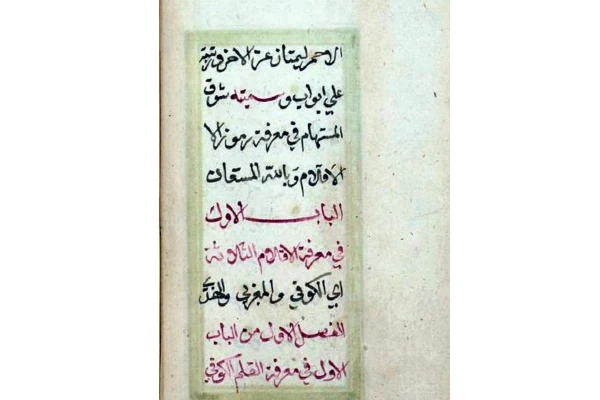 الاحمر ليمتاز عن الاخر ورتبته
علي ابواب وسميته شوق
المستهام في معرفة رموز الا
الاقلام وبالله المستعان
الباب الاول
في معرفة الاقلام الثلاثة
اي الكوفي والمغربي والهندي
الفصل الاول من الباب
الاول في معرفة القلم الكوفي